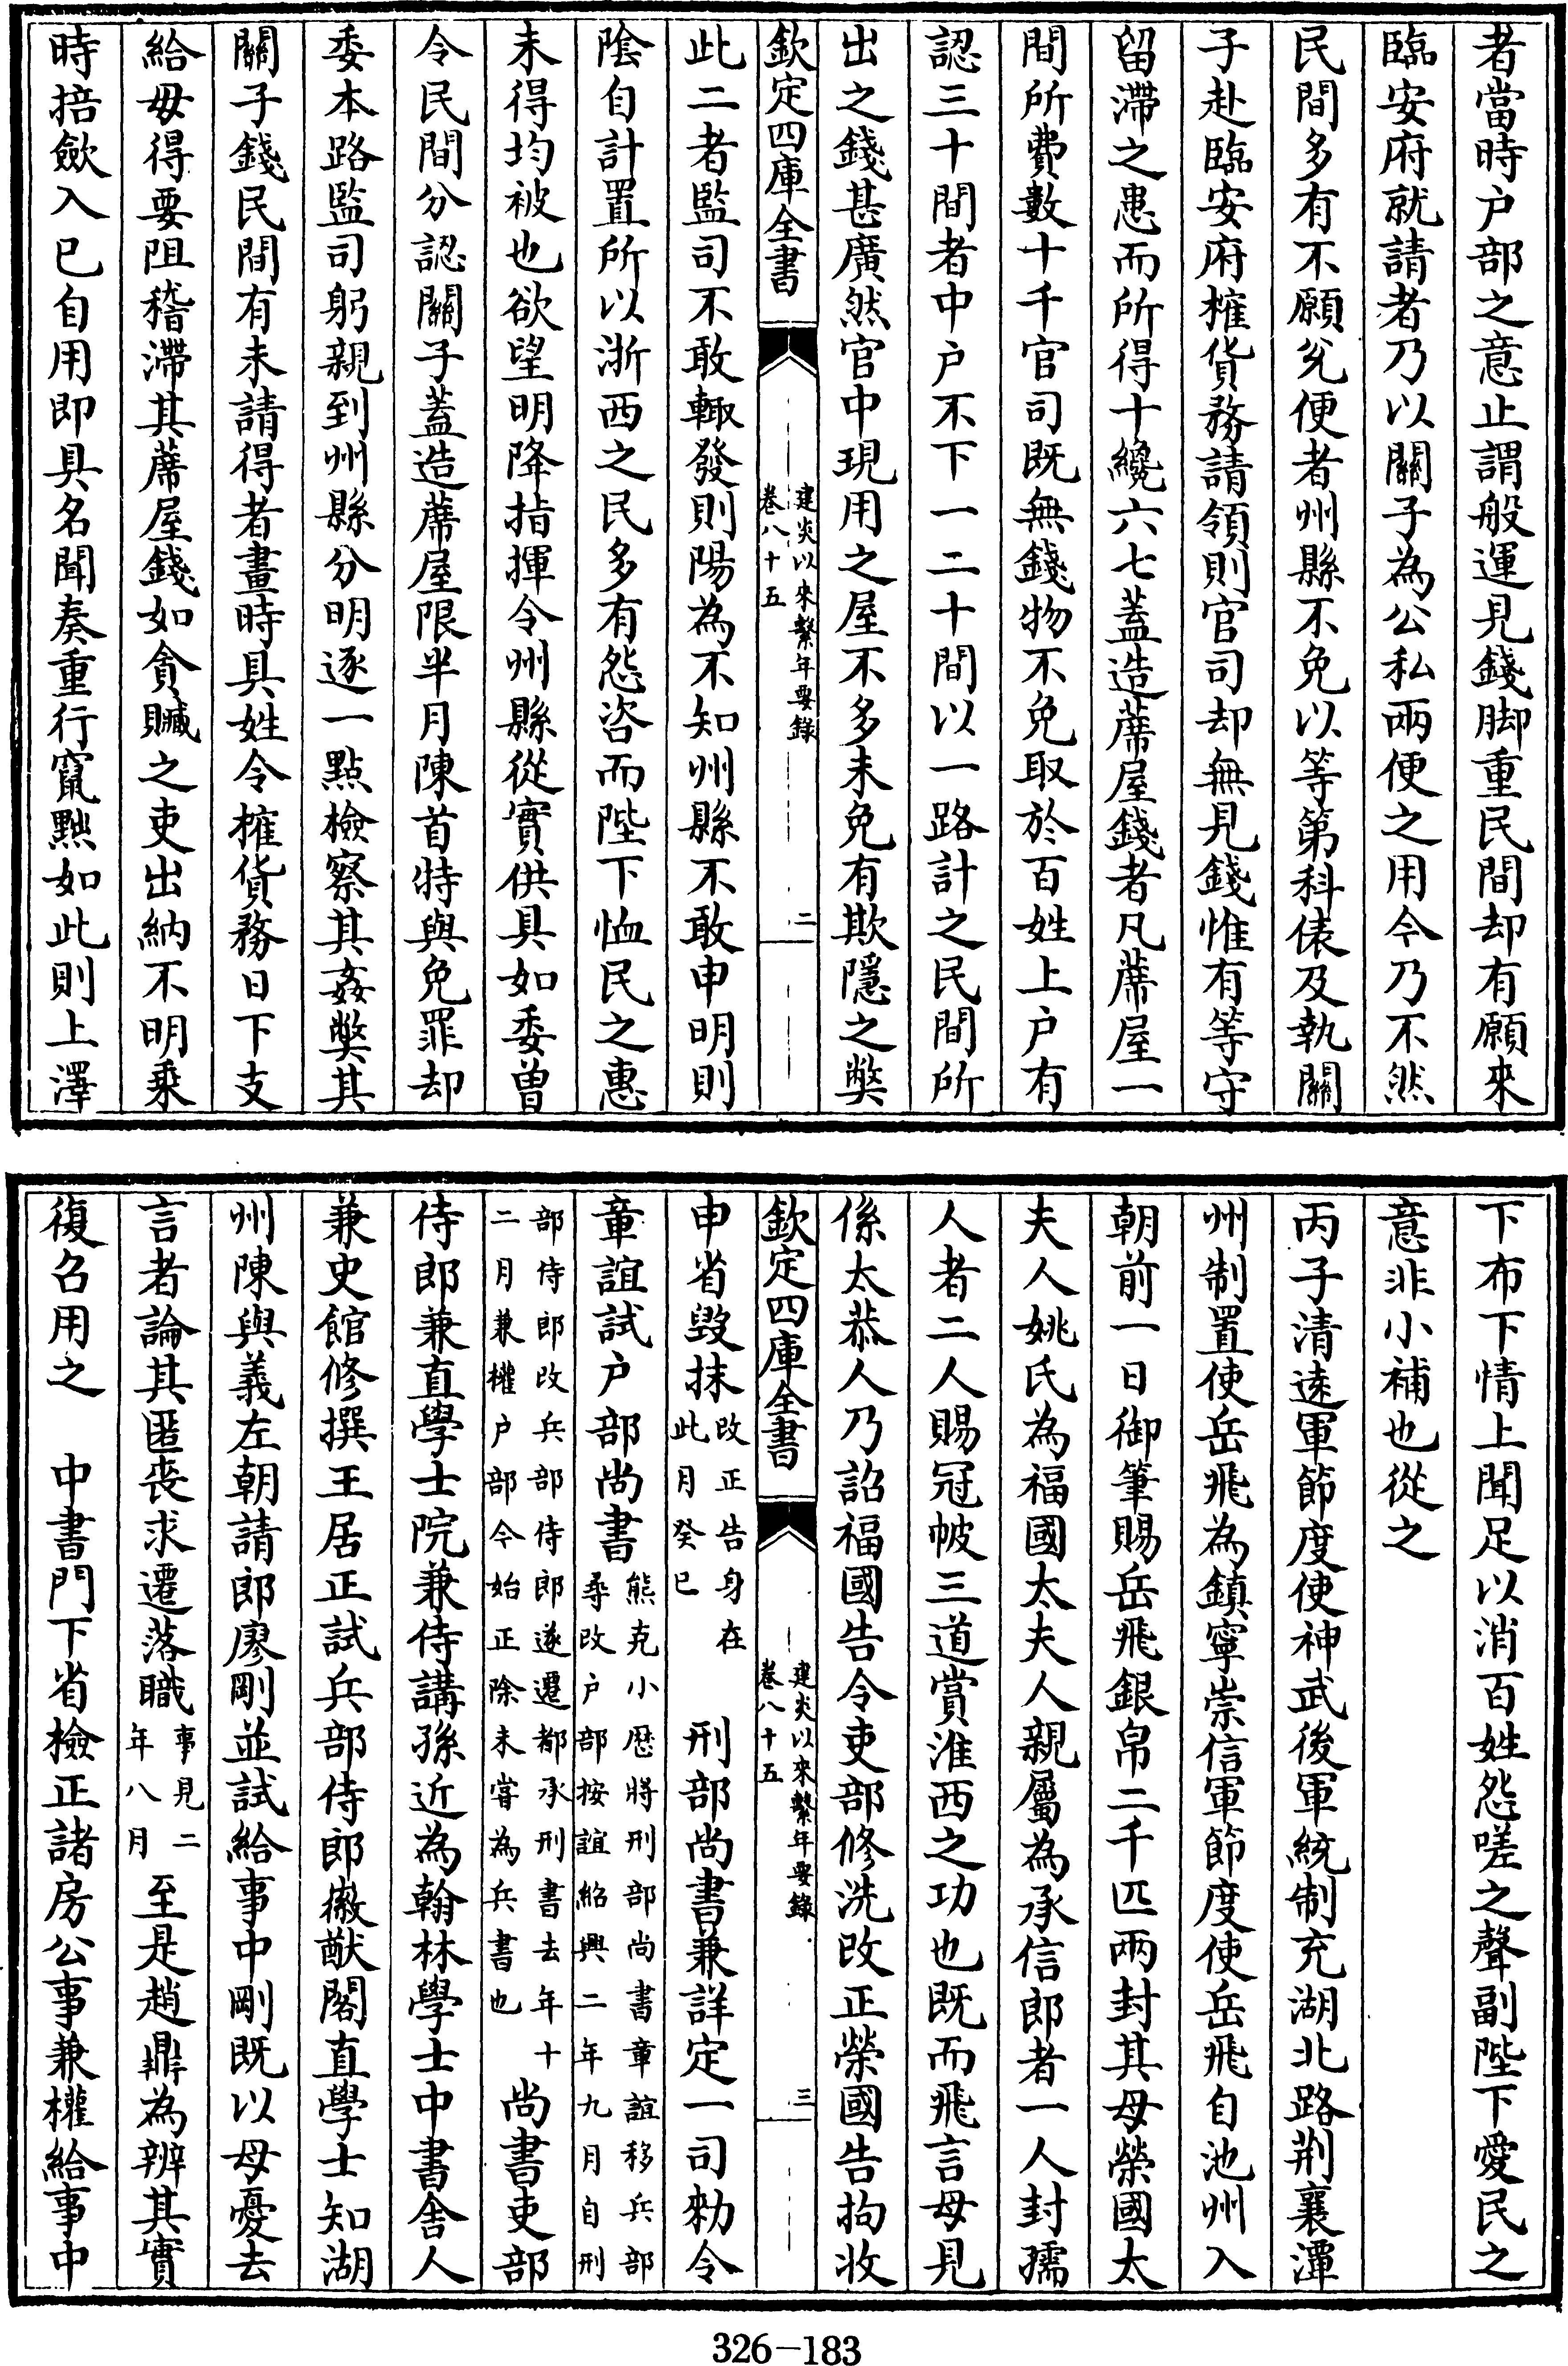 者當時户部之意止謂般運見錢脚重民間却有願來
臨安府就請者乃以關子為公私兩便之用今乃不然
民間多有不願兊便者州縣不免以等第科俵及執關
子赴臨安府榷貨務請領則官司却無見錢惟有等守
留滯之患而所得十纔六七蓋造蓆屋錢者凡蓆屋一
間所費數十千官司既無錢物不免取於百姓上户有
認三十間者中户不下一二十間以一路計之民間所
出之錢甚廣然官中現用之屋不多未免有欺隱之弊
欽定四庫全書
建炎以來繫年要錄
卷八十五
二
此二者監司不敢輙發則陽為不知州縣不敢申明則
陰自計置所以浙西之民多有怨咨而陛下恤民之惠
未得均被也欲望明降指揮令州縣從實供具如委曾
令民間分認關子蓋造蓆屋限半月陳首特與免罪却
委本路監司躬親到州縣分明逐一點檢察其姦弊其
關子錢民間有未請得者畫時具姓令榷貨務日下支
給毋得要阻稽滯其蓆屋錢如貪贓之吏出納不明乘
時掊歛入已自用即具名聞奏重行竄黜如此則上澤
下布下情上聞足以消百姓怨嗟之聲副陛下愛民之
意非小補也從之
丙子清逺軍節度使神武後軍統制充湖北路荆襄潭
州制置使岳飛為鎮寧崇信軍節度使岳飛自池州入
朝前一日御筆賜岳飛銀帛二千匹兩封其母榮國太
夫人姚氏為福國太夫人親屬為承信郎者一人封孺
人者二人賜冠帔三道賞淮西之功也既而飛言母見
係太恭人乃詔福國告令吏部修洗改正榮國告拘收
欽定四庫全書
建炎以來繫年要錄
卷八十五
三
申省毀抹改正告身在此月癸巳 刑部尚書兼詳定一司勑令
章誼試户部尚書熊克小厯將刑部尚書章誼移兵部尋改户部按誼紹興二年九月自刑
部侍郎改兵部侍郎遂遷都承刑書去年十二月兼權户部今始正除未嘗為兵書也尚書吏部
侍郎兼直學士院兼侍講孫近為翰林學士中書舍人
兼史館修撰王居正試兵部侍郎徽猷閣直學士知湖
州陳與義左朝請郎廖剛並試給事中剛既以母憂去
言者論其匿喪求遷落職事見二年八月至是趙鼎為辨其實
復召用之 中書門下省檢正諸房公事兼權給事中
326-183